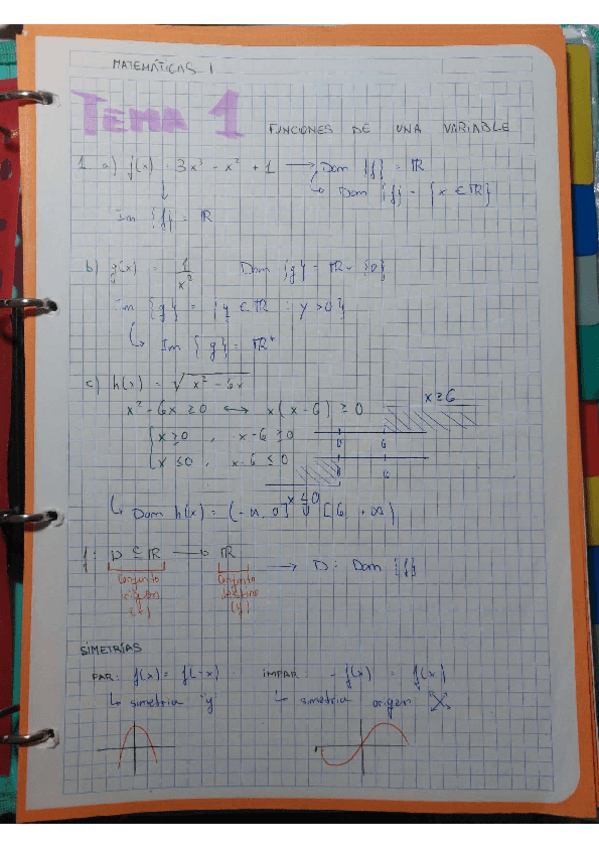 MATEMÁTICAS I
TEMA 1 FUNCIONES DE UNA VARIABLE
1 a) f(x) = 3x³ - x² + 1 → Dom {f} = ℝ
↳ Dom {f} = {x ∈ ℝ}
Im {f} = ℝ
b) g(x) = 1/x² Dom {g} = ℝ - {0}
Im {g} = {y ∈ ℝ : y > 0}
↳ Im {g} = ℝ⁺
c) h(x) = √x² - 6x
x² - 6x ≥ 0 ↔ x(x - 6) ≥ 0
x ≥ 6
x ≥ 0 , x - 6 ≥ 0
0 6
x ≤ 0 , x - 6 ≤ 0
0 6
x ≤ 0
↳ Dom h(x) = (-∞, 0] ∪ [6, +∞)
f: D ⊆ ℝ → ℝ → D: Dom {f}
Conjunto origen (x)
Conjunto destino (y)
SIMETRÍAS
PAR: f(x) = f(-x) IMPAR: -f(x) = f(-x)
↳ simetria "y" ↳ simetria origen